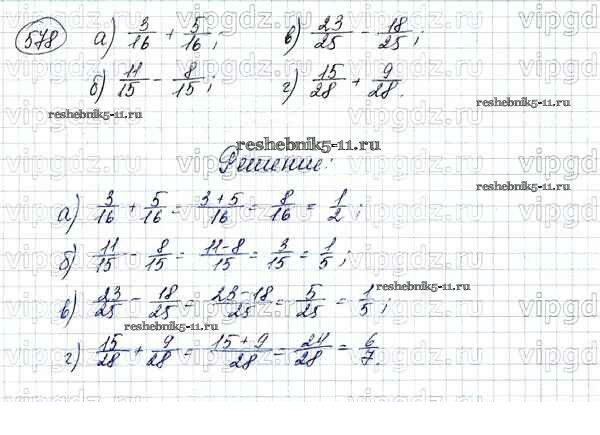 578 а) 3/16 + 5/16; в) 23/25 - 18/25;
б) 11/15 - 8/15; г) 15/28 + 9/28.
reshebnik5-11.ru
reshebnik5-11.ru
reshebnik5-11.ru
Решение:
reshebnik5-11.ru
а) 3/16 + 5/16 = 3+5/16 = 8/16 = 1/2;
б) 11/15 - 8/15 = 11-8/15 = 3/15 = 1/5;
reshebnik5-11.ru
в) 23/25 - 18/25 = 23-18/25 = 5/25 = 1/5;
reshebnik5-11.ru
г) 15/28 + 9/28 = 15+9/28 = 24/28 = 6/7.
vipgdz.ru